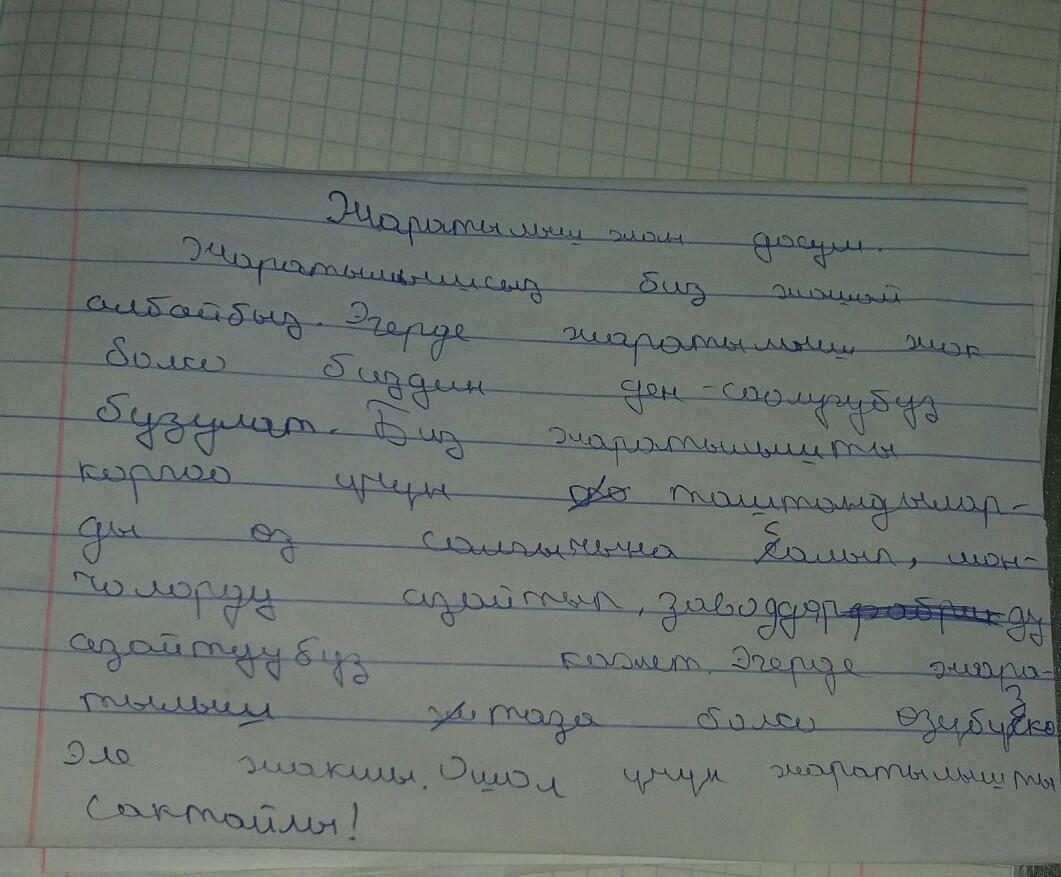 Жаратылыш жан досум.
Жаратылышсыз биз жашай
албайбыз. Эгерде жаратылыш жок
болсо биздин ден-соолугубуз
бузулат. Биз жаратылышты
коргоо үчүн таштандылар-
ды өз салгычына салып, мон-
чолорду азайтып, заводдорду
азайтуубуз керек. Эгерде жара-
тылыш таза болсо өзүбүзгө
эле жакшы. Ошол үчүн жаратылышты
сактайлы!